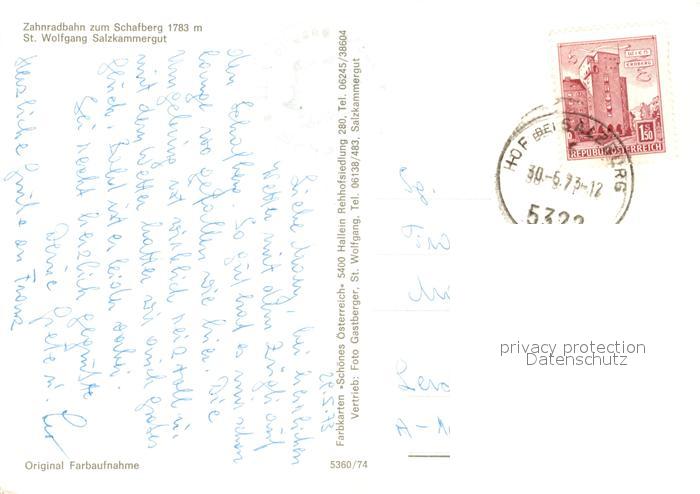 Zahnradbahn zum Schafberg 1783 m
St. Wolfgang Salzkammergut
29.5.73
Liebe
Wetter mit dem Zug auf
den Schafberg. So gut hat es mir schon
lange so gefallen wie hier. Die
Umgebung ist wirklich reizvoll u.
mit dem Wetter hatten wir auch großes
Glück. Bald ist es leider vorbei.
Sei recht herzlich gegrüßt
Deine Grete u.
Herzliche Grüße an Franz
Original Farbaufnahme
5360/74
Farbkarten »Schönes Österreich« 5400 Hallein Rehhofsiedlung 280, Tel. 06245/38604
Vertrieb: Foto Gastberger, St. Wolfgang, Tel. 06138/483, Salzkammergut
WIEN
ERDBERG
1.50
REPUBLIK ÖSTERREICH
HOF BEI SALZBURG
30.-5.73-12
5322
privacy protection
Datenschutz